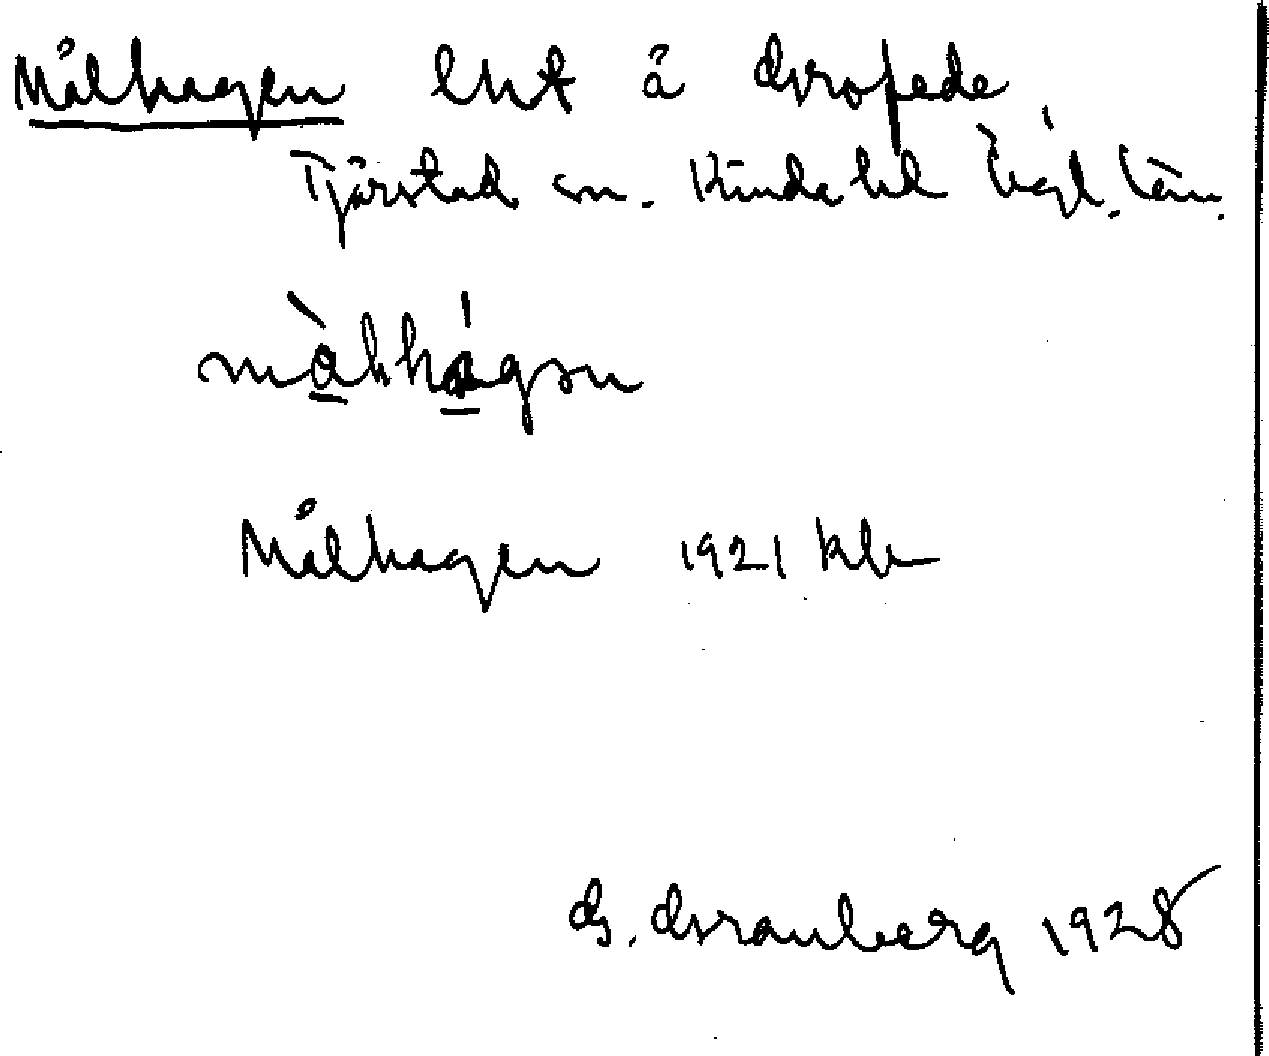 Målhagen lht å Gropede
Tjärstad sn. Kinda hd Ögl. län.
màlhágən
Målhagen 1921
G. Granberg 1928